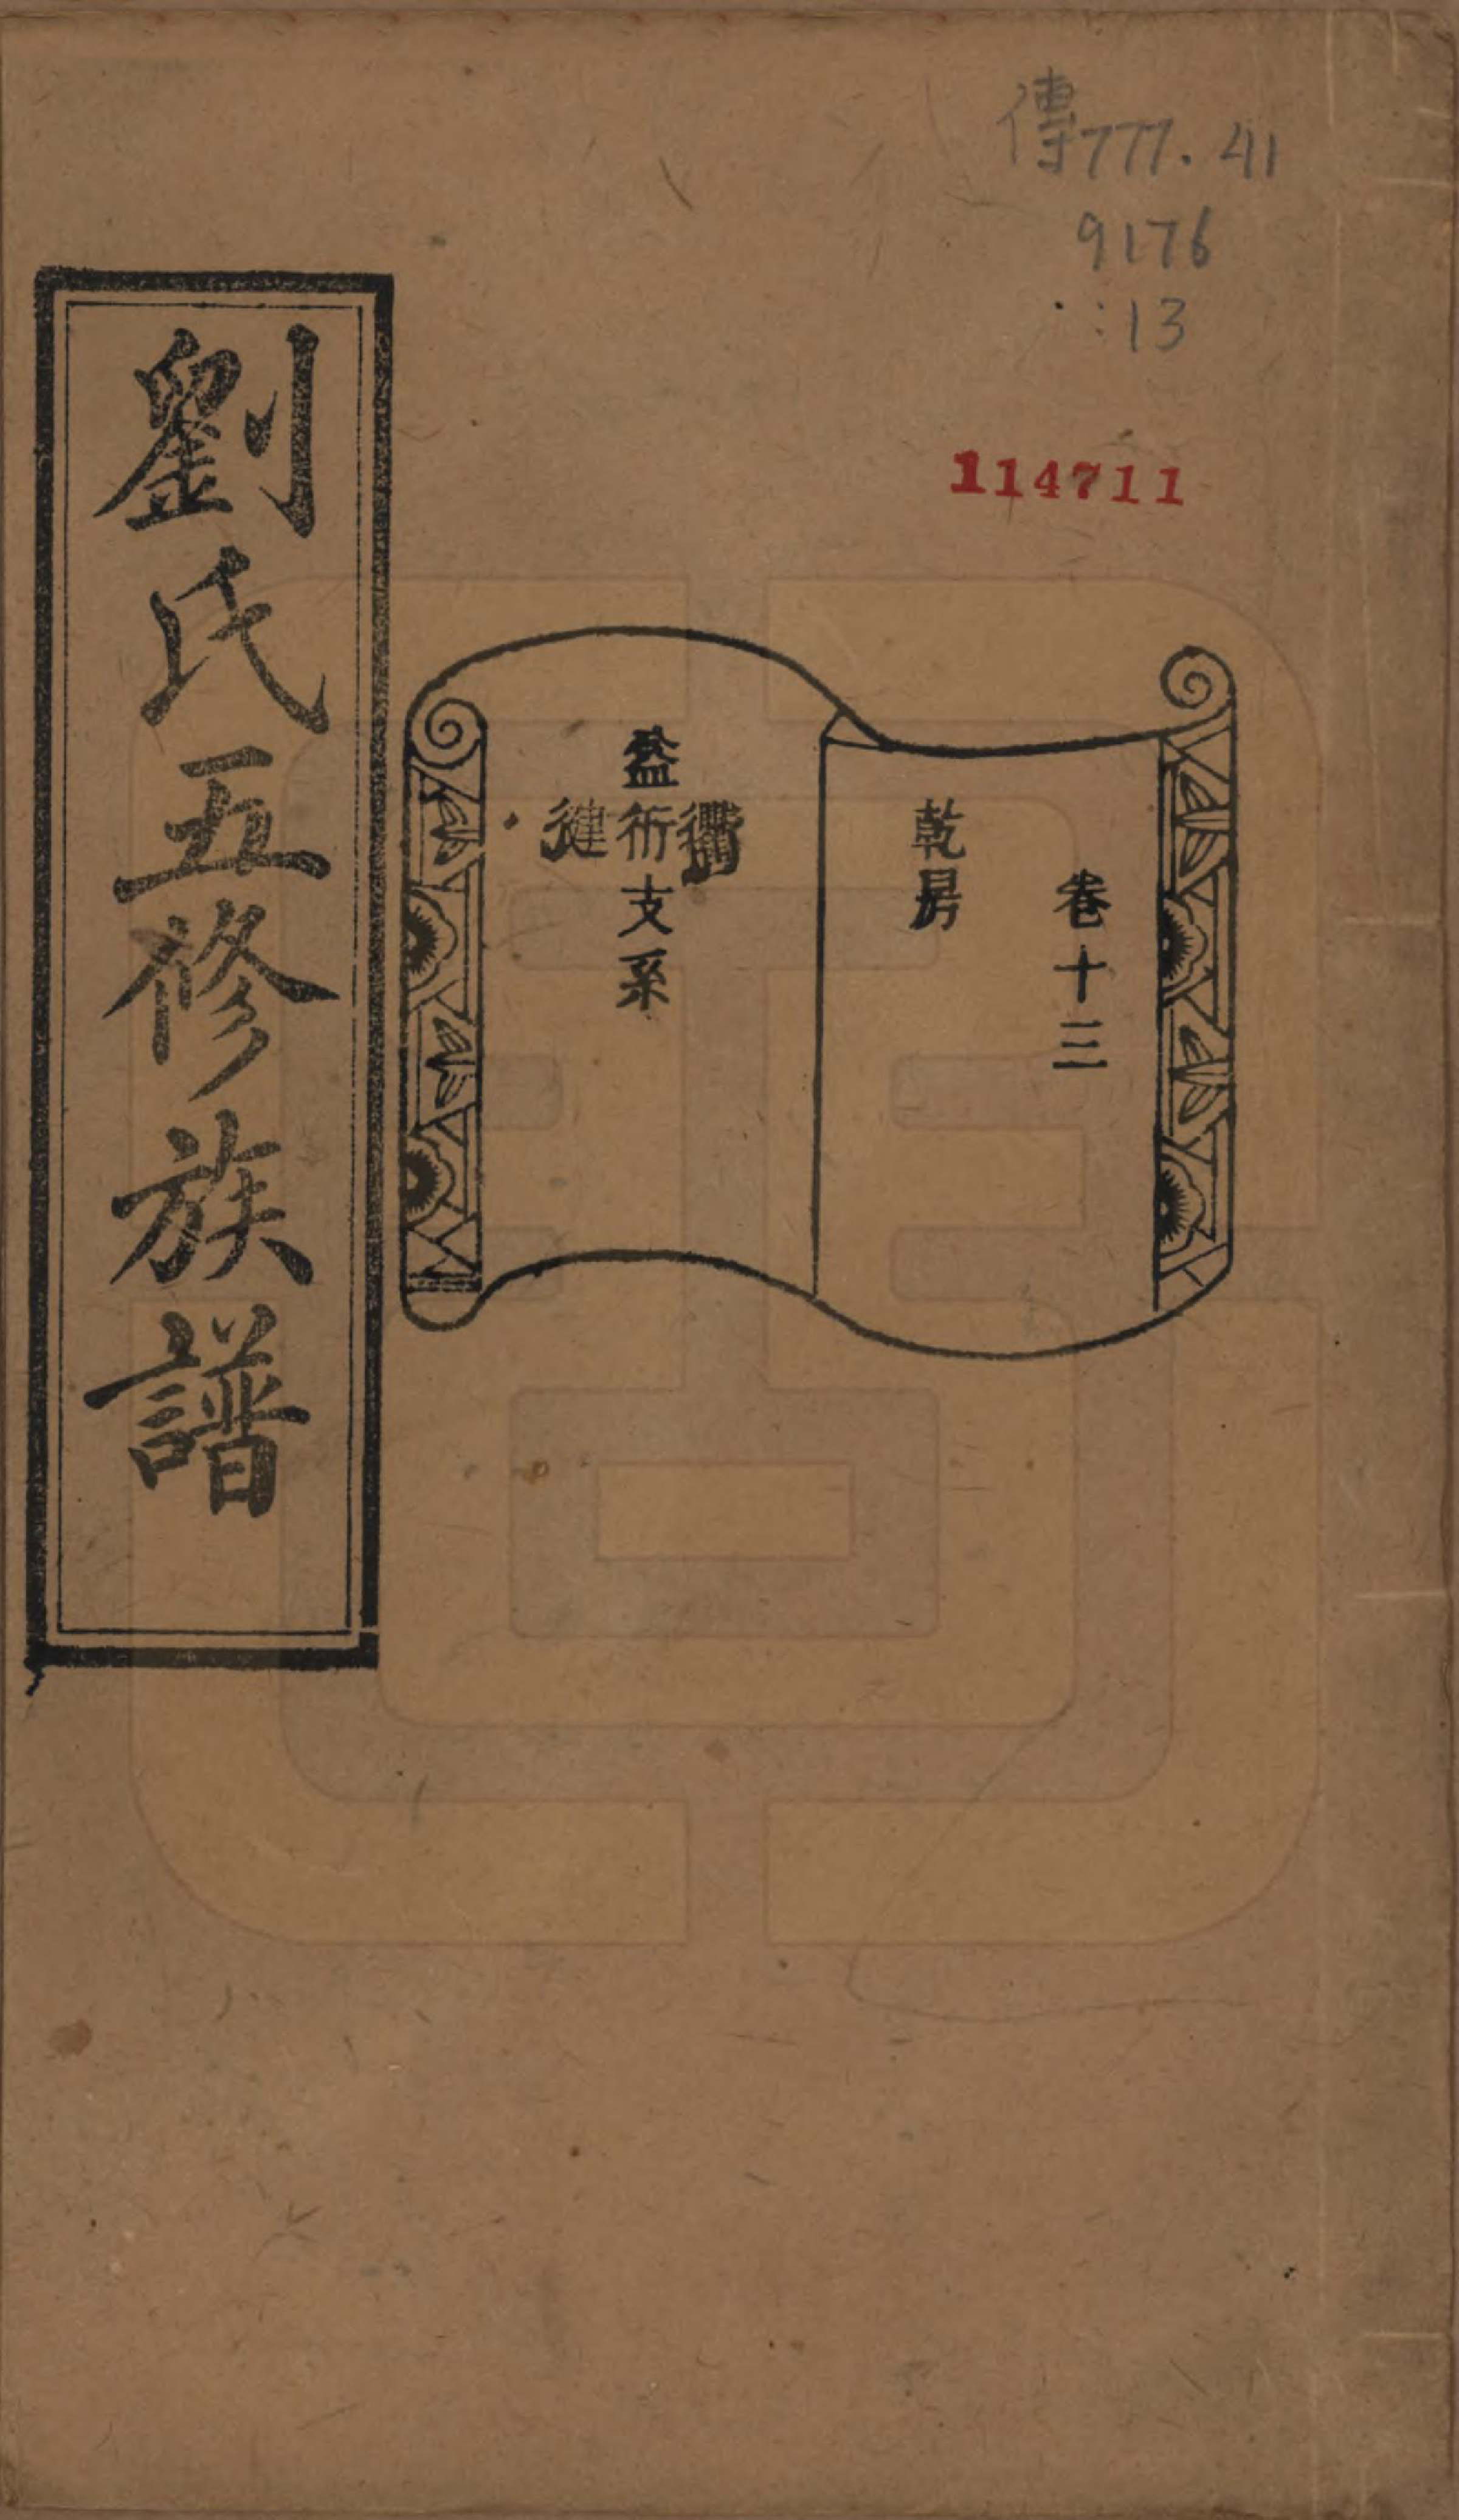 傳777.41
9176
:13
114711
卷十三
乾房
益術支系
劉氏五修族譜